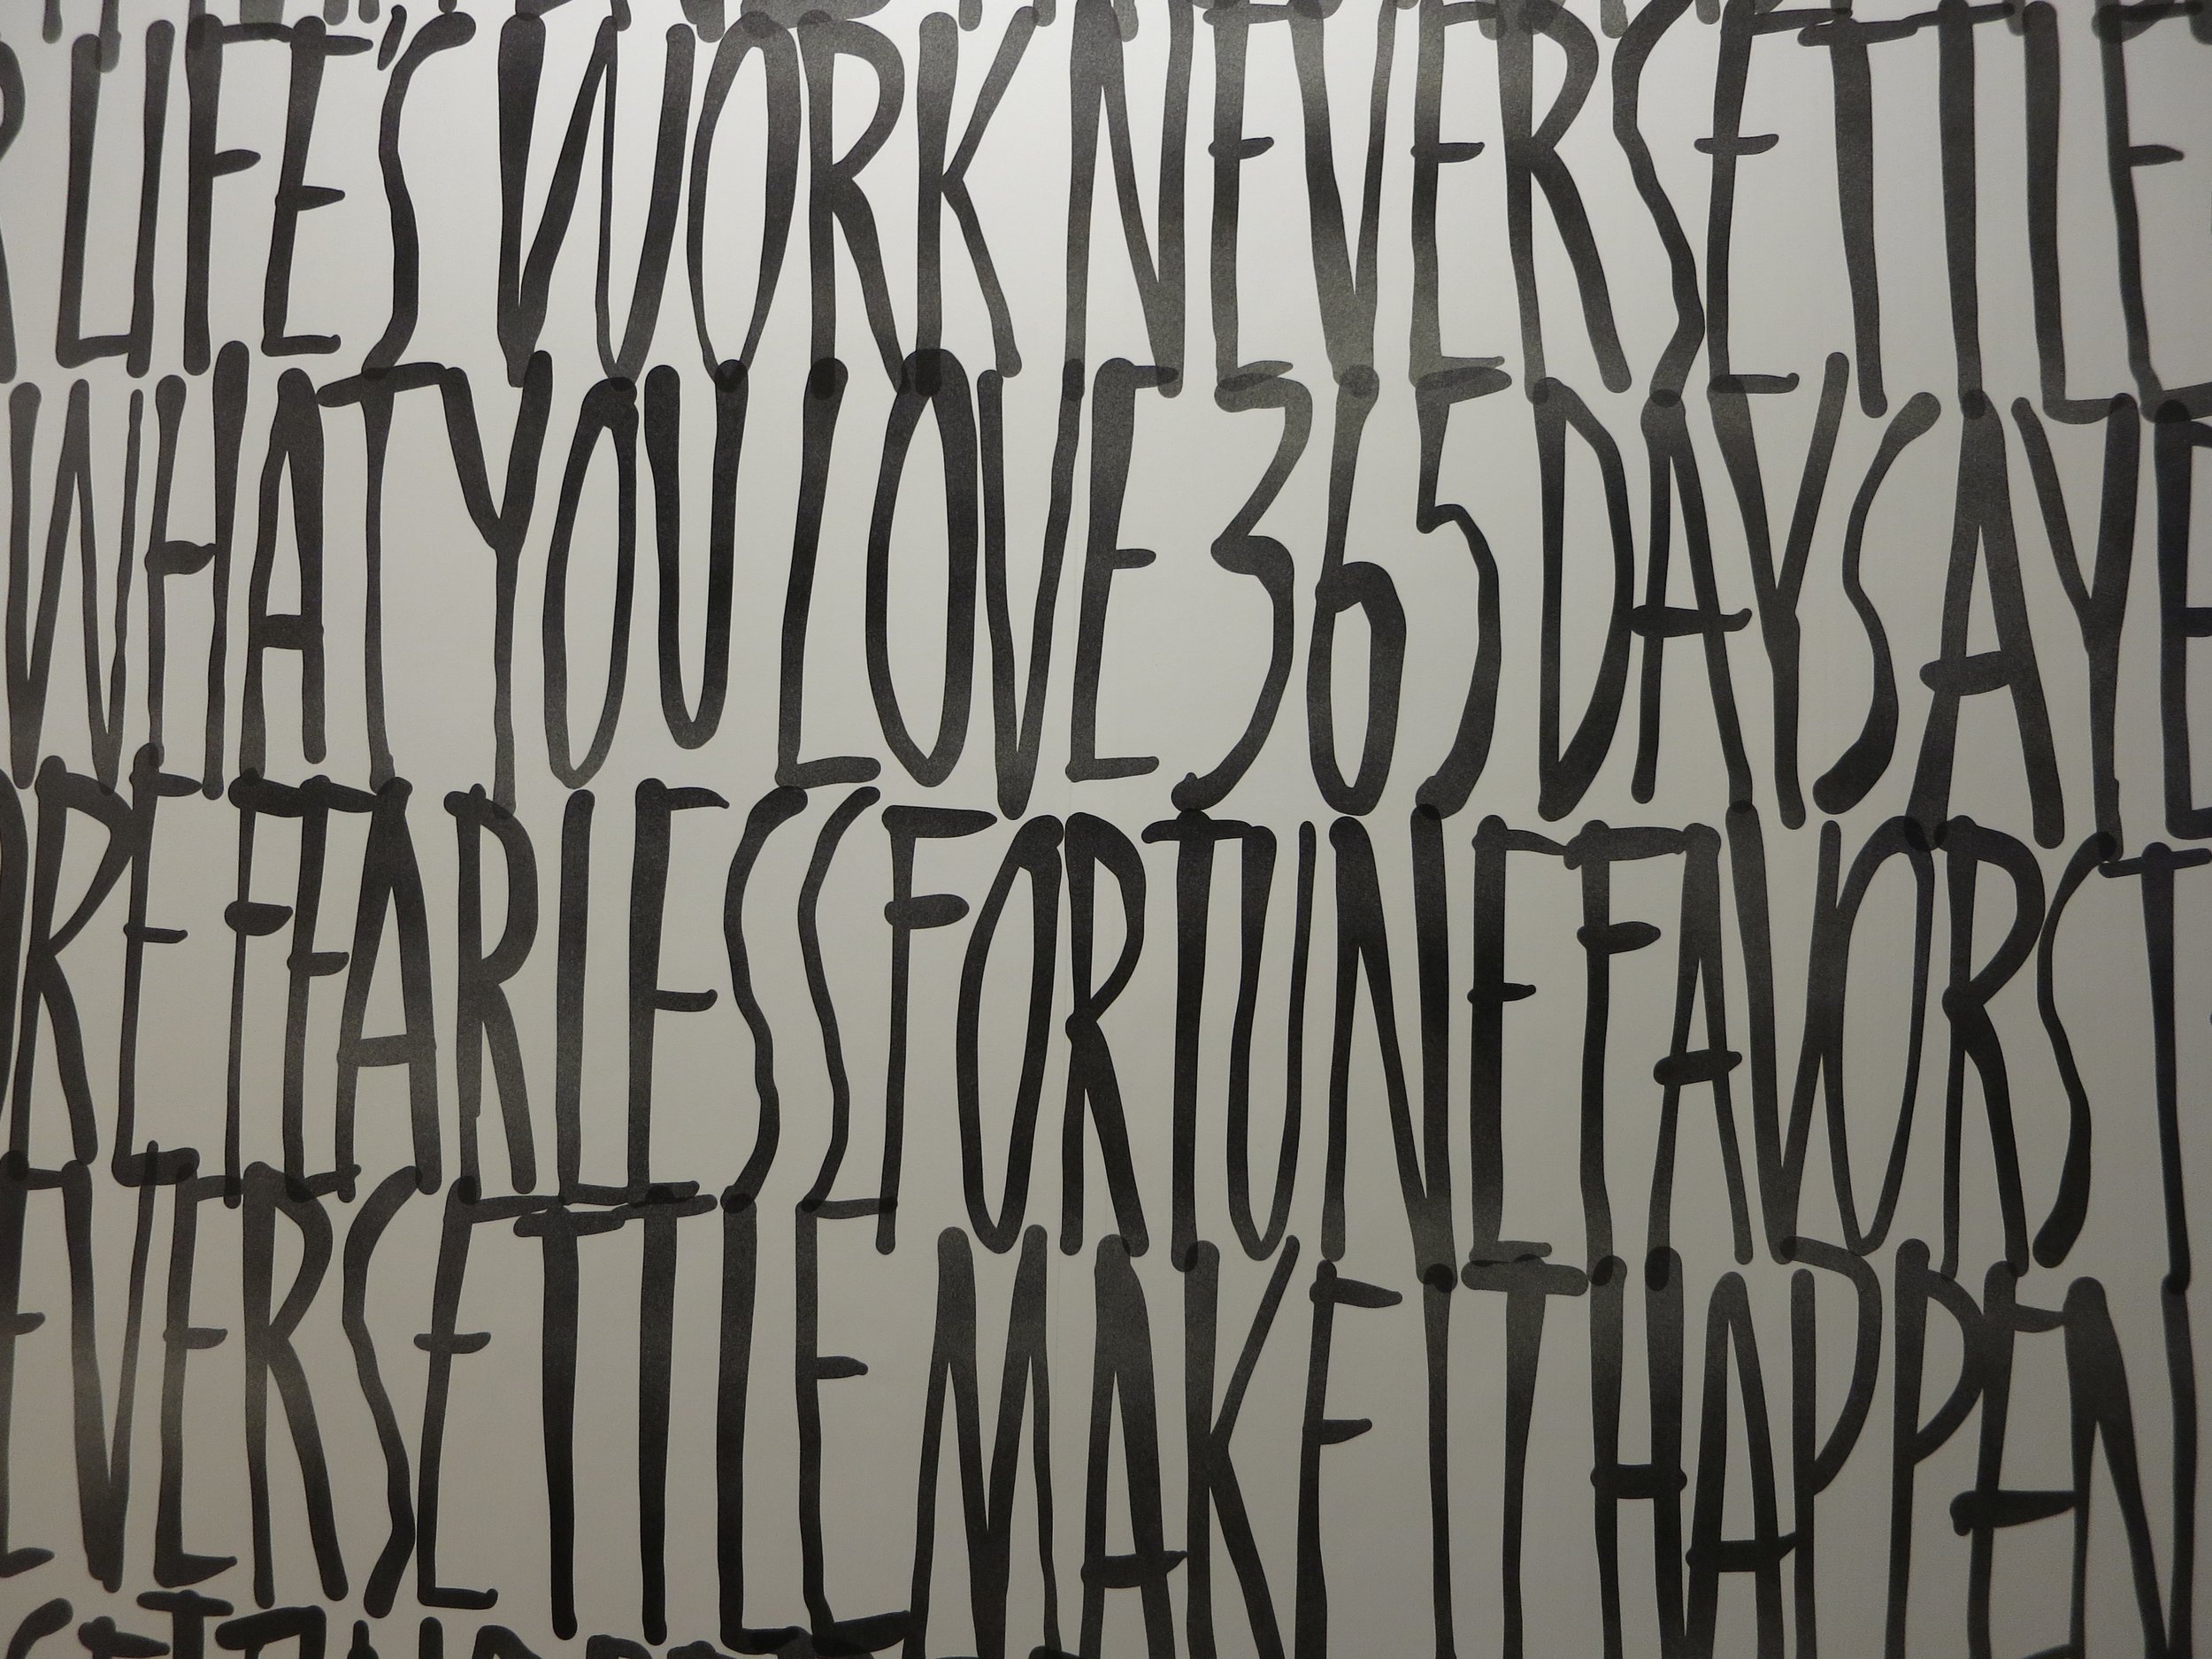 LIFE'S WORK NEVER SETTLE
WHAT YOU LOVE 365 DAYS A YE
ORE FEARLESS FORTUNE FAVORS T
EVER SETTLE MAKE IT HAPPEN